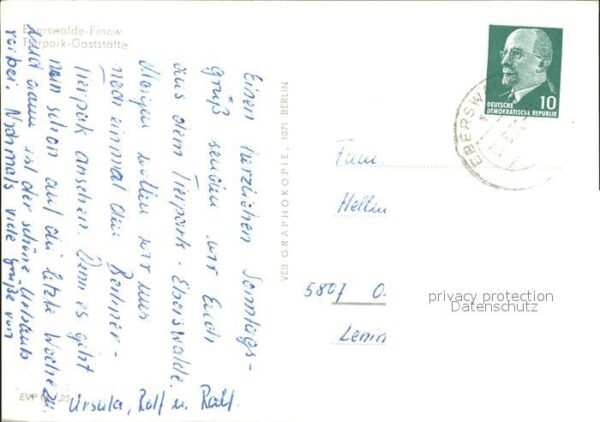 Eberswalde-Finow
Tierpark-Gaststätte
Einen herzlichen Sonntags-
gruß senden wir Euch
aus dem Tierpark-Eberswalde.
Morgen wollen wir uns
noch einmal den Berliner-
Tierpark ansehen. Denn es geht
nun schon auf die letzte Woche zu.
und dann ist der schöne Urlaub
vorbei. Nochmals viele Grüße von
Ursula, Rolf u. Ralf.
EVP
VEB GRAPHOKOPIE, 1071 BERLIN
EBERSWA
DEUTSCHE
DEMOKRATISCHE REPUBLIK
10
Fam.
Hellm
5807 O
Lenin
privacy protection
Datenschutz